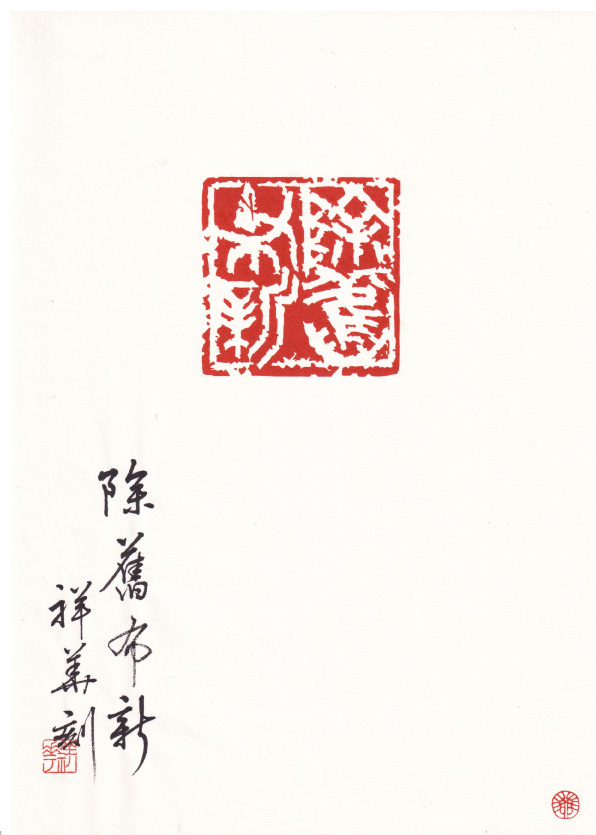 除舊布新
除舊布新
祥華刻